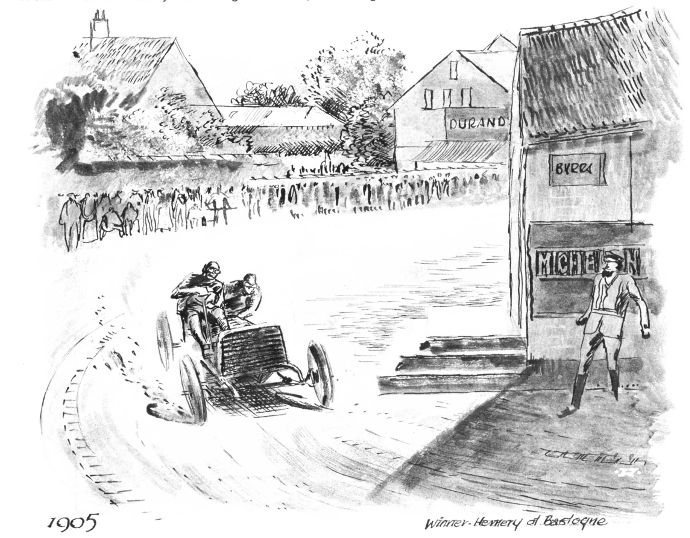 DURAND
BYRRH
MICHELIN
1905
Winner-Hemery at Bastogne